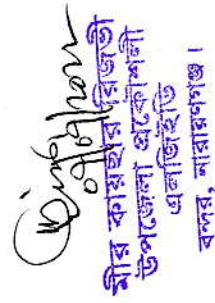 মীর কায়সার রিজভী
উপজেলা প্রকৌশলী
এলজিইডি
বন্দর, নারায়ণগঞ্জ।